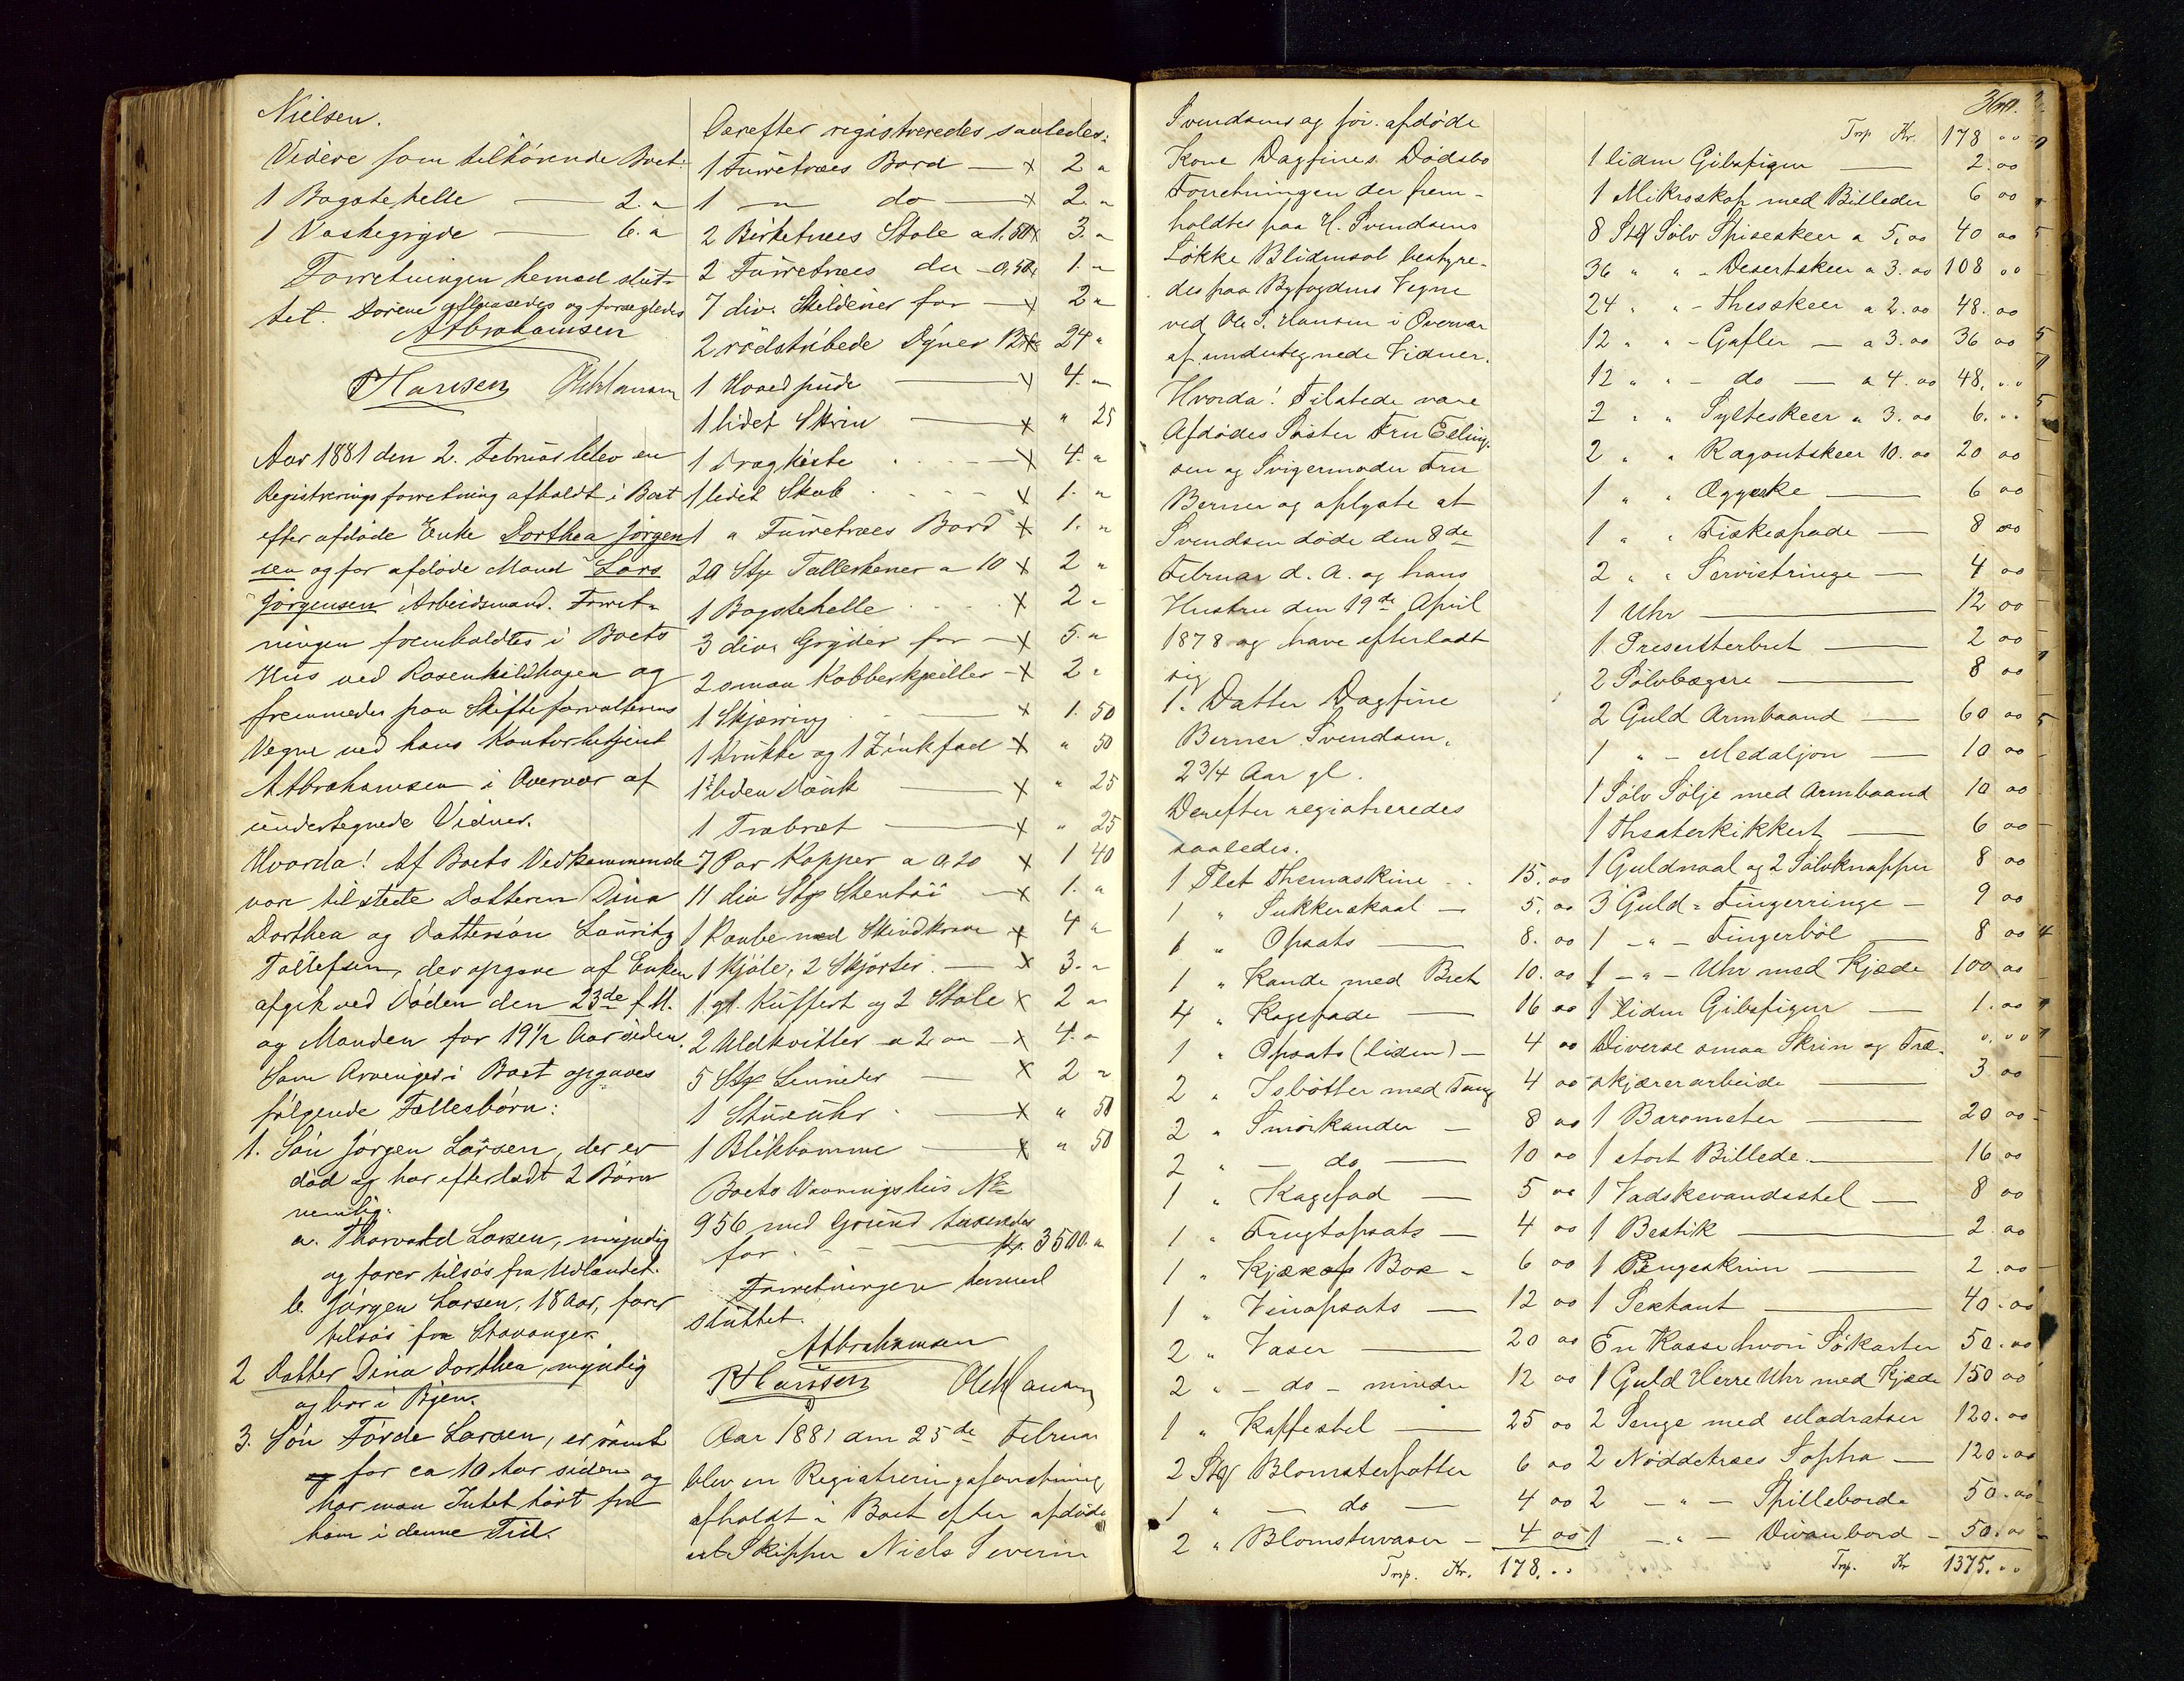 Nielsen.
Videre som tilhørende Boet:
1 Bagstehelle — 2. "
1 Vaskegryde — 6. "
Forretningen hermed slut-
tet. Dørene aflaasedes og forsegledes
A Abrahamsen
P Hansen OchHansen
Aar 1881 den 2. Februar blev en
Registreringsforretning afholdt i Boet
efter afdøde Enke Dorthea Jørgen
sen og før afdøde Mand Lars
Jørgensen Arbeidsmand. Forret-
ningen fremholdtes i Boets
Hus ved Rosenkildhagen og
fremmedes paa Skifteforvalterens
Vegne ved hans Kontorbetjent
A Abrahamsen i Overvær af
undertegnede Vidner.
Hvorda! Af Boets Vedkommende
vare tilstede Datteren Dina
Dorthea og Dattersøn Lauritz
Tollefsen, der opgave at Enken
afgik ved Døden den 23de f. M.
og Manden for 19 1/2 Aar siden.
Som Arvinger i Boet opgaves
følgende Fællesbørn:
1. Søn Jørgen Larsen, der er
død og har efterladt 2 Børn
nemlig:
a. Thorvald Larsen, myndig
og farer tilsøs fra Udlandet.
b. Jørgen Larsen, 18 Aar, farer
tilsøs fra Stavanger.
2 Datter Dina Dorthea, myndig
og bor i Byen.
3. Søn Tørde Larsen, er rømt
for ca 10 Aar siden og
har man Intet hørt fra
ham i denne Tid.
Derefter registreredes saaledes:
1 Furretræes Bord — x 2 "
1 — " do — x 2. "
2 Birketræes Stole a 1.50 x 3. "
2 Furretræes do - 0,50 x 1. "
7 div. Skilderier for — x 2 "
2 rødstribede Dyner 12 x 24 "
1 Hovedpude — x 4. "
1 lidet Skrin — x " 25
1 Dragkiste — x 4. "
1 lidet Skab — x 1. "
1 " Furretræes Bord x 1. "
20 Stk Tallerkener a 10 x 2 "
1 Bagstehelle x 2 "
3 div. Gryder for — x 5. "
2 smaa Kobberkjedler — x 2 "
1 Skjærring — x 1. 50
1 Krukke og 1 Zinkfad x " 50
1 liden Dunk — x " 25
1 Træbræt — x " 25
7 Par Kopper a 0.20 x 1 40
11 div Stk Stentøi — x 1. "
1 Kaabe med Skindkrave x 4 "
1 Kjole, 2 Skjørter — x 3. "
1 gl. Kuffert og 2 Stole x 2 "
2 Uldkvitler a 2. " — x 4. "
5 Stk Linneder — x 2 "
1 Stueuhr — x " 50
1 Blikkomme — x " 50
Boets Vaaningshus No
956 med Grund taxeredes
for — Kr. 3500. "
Forretningen hermed
sluttet.
A Abrahamsen
P Hansen OchHansen
Aar 1881 den 25de Februar
blev en Registreringsforretning
afholdt i Boet efter afdøde
Skipper Niels Severin
Svendsens og før. afdøde
Kone Dagfines Dødsbo
Forretningen der frem-
holdtes paa H. Svendsens
Løkke Blidensol bestyre-
des paa Byfogdens Vegne
ved Ole S. Hansen i Overvær
af undertegnede Vidner.
Hvorda! Tilstede vare
Afdødes Søster Fru Elling-
sen og Svigermoder Fru
Berner og oplyste at
Svendsen døde den 8de
Februar d. A. og hans
Hustru den 19de April
1878 og have efterladt
sig
1. Datter Dagfine
Berner Svendsen,
2 3/4 Aar gl.
Derefter registreredes
saaledes.
1 Plet Themaskine 15. 00
1 " Sukkerskaal — 5. 00
1 " Opsats — 8. 00
1 " Kande med Bret 10. 00
4 " Kagefade — 16 00
1 " Opsats (liden) — 4 00
2 " Isbøtter med Tang 4 00
2 " Smørkander — 8 00
2 " — do — 10 00
1 " Kagefad — 5 00
1 " Frugtopsats — 4 00
1 " Kjæx Box - 6 00
1 " Vinopsats — 12 00
2 " Vaser — 20 00
2 " - do - mindre 12 00
1 " Kaffestel — 25 00
2 Stk Blomsterpotter 6 00
1 " — do — 4 00
2 " Blomstervaser — 4 00
Trsp. Kr. 178. 00
364.
Trsp Kr. 178 00
1 liden Gibsfigur — 2. 00
1 Mikroskop med Billeder 6 00
8 Stk Sølv Spiseskeer a 5. 00 40 00
36 " " - Desertskeer a 3. 00 108 00
24 " " - Theskeer a 2. 00 48. 00
12 " " - Gafler — a 3. 00 36 00
12 " " - do — a 4. 00 48. 00
2 " " Sylteskeer a 3. 00 6. 00
2 " " Ragoutskeer 10. 00 20 00
1 " " Æggeske — 6 00
1 " " Fiskespade — 8 00
2 " " Servietringe — 4 00
1 Uhr — 12 00
1 Presenterbret — 2 00
2 Sølvbægere — 8 00
2 Guld Armbaand — 60 00
1 " - Medaljon — 10 00
1 Sølv Sølje med Armbaand 10 00
1 Theaterkikkert — 6 00
1 Guldnaal og 2 Sølvknapper 8 00
3 Guld - Fingerringe — 9 00
1 - " - Fingerbøl — 8 00
1 - " - Uhr med Kjæde 100 00
1 liden Gibsfigur — 1. 00
Diverse smaa Skrin og Træ-
skjærerarbeide — 3 00
1 Barometer — 20 00
1 stort Billede — 16 00
1 Vadskevandsstel — 8 00
1 Bestik — 2. 00
1 Pengeskrin — 2. 00
1 Sextant — 40. 00
En Kasse hvori Søkarter 50. 00
1 Guld Herre Uhr med Kjæde 150 00
2 Senge med Madratser 120. 00
2 Nøddetræes Sopha — 120. 00
2 - " - Spilleborde 50. 00
1 - " - Divanbord - 50. 00
Trsp. Kr 1375. 00